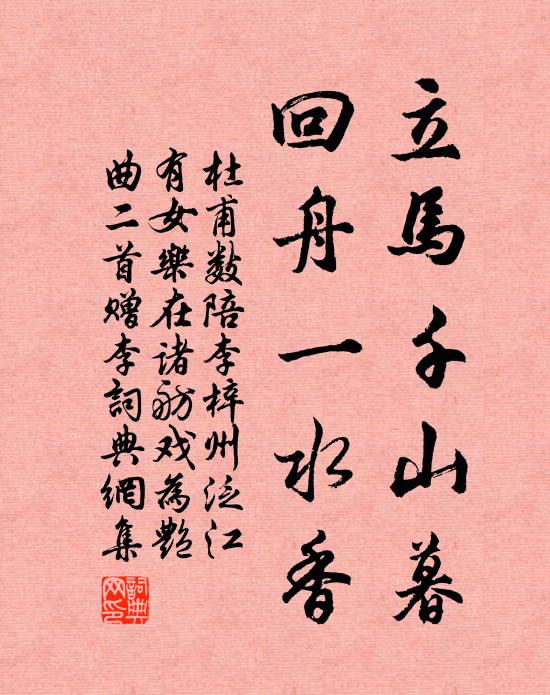 立馬千山暮
回舟一水香
杜甫數陪李梓州泛江
有女樂在諸舫戏為艷
曲二首贈李詞典網集
詞典網印